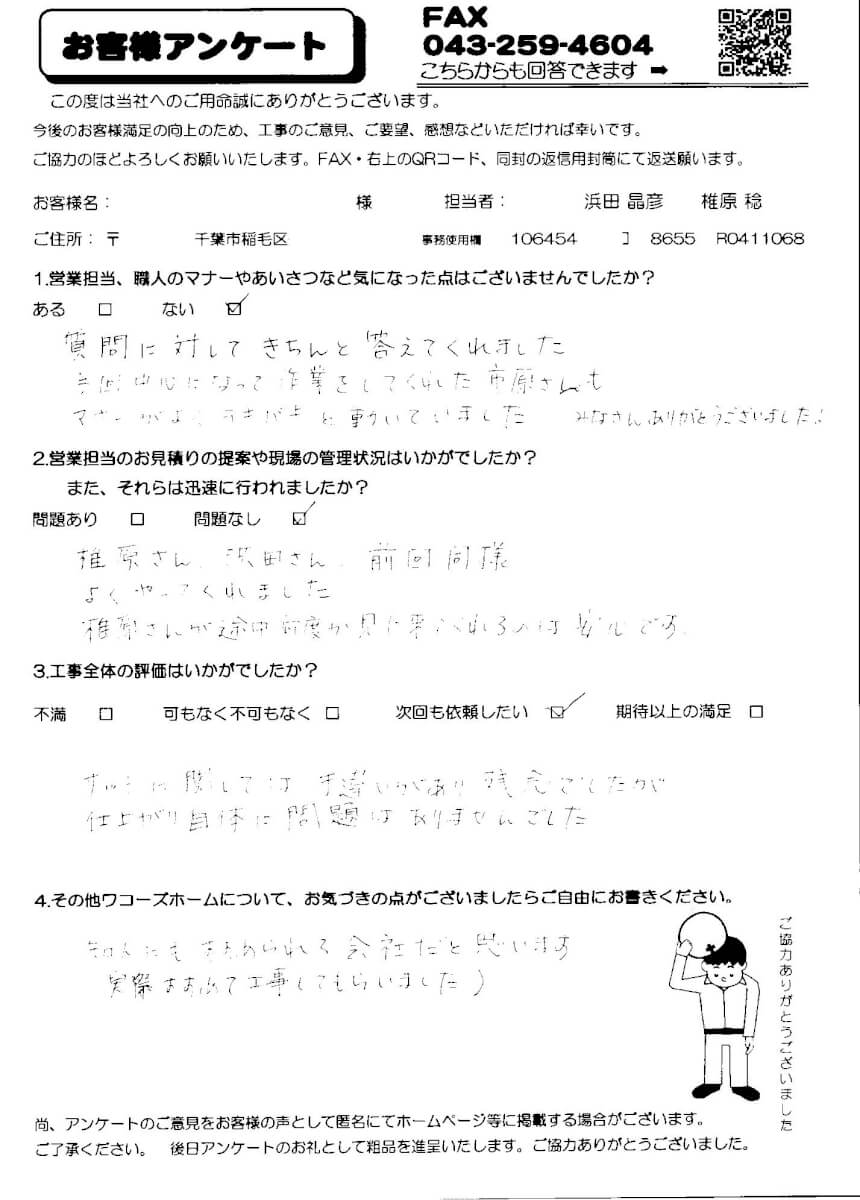 お客様アンケート
FAX
043-259-4604
こちらからも回答できます ➡
この度は当社へのご用命誠にありがとうございます。
今後のお客様満足の向上のため、工事のご意見、ご要望、感想などいただければ幸いです。
ご協力のほどよろしくお願いいたします。FAX・右上のQRコード、同封の返信用封筒にて返送願います。
お客様名： 様 担当者： 浜田 晶彦 椎原 稔
ご住所：〒 千葉市稲毛区 事務使用欄 106454 ] 8655 R0411068
1.営業担当、職人のマナーやあいさつなど気になった点はございませんでしたか？
ある □ ない ☑
質問に対してきちんと答えてくれました
今回中心になって作業をしてくれた市原さんも
マナーがよくテキパキと動いていました みなさんありがとうございました!
2.営業担当のお見積りの提案や現場の管理状況はいかがでしたか？
また、それらは迅速に行われましたか？
問題あり □ 問題なし ☑
椎原さん、浜田さん、前回同様
よくやってくれました
椎原さんが途中何度か見に来てくれるのは安心です。
3.工事全体の評価はいかがでしたか？
不満 □ 可もなく不可もなく □ 次回も依頼したい ☑ 期待以上の満足 □
に関しては手違いがあり残念でしたが
仕上がり自体に問題はありませんでした
4.その他ワコーズホームについて、お気づきの点がございましたらご自由にお書きください。
知人にもすすめられる会社だと思います
実際すすめて工事してもらいました)
ご協力ありがとうございました
尚、アンケートのご意見をお客様の声として匿名にてホームページ等に掲載する場合がございます。
ご了承ください。 後日アンケートのお礼として粗品を進呈いたします。ご協力ありがとうございました。